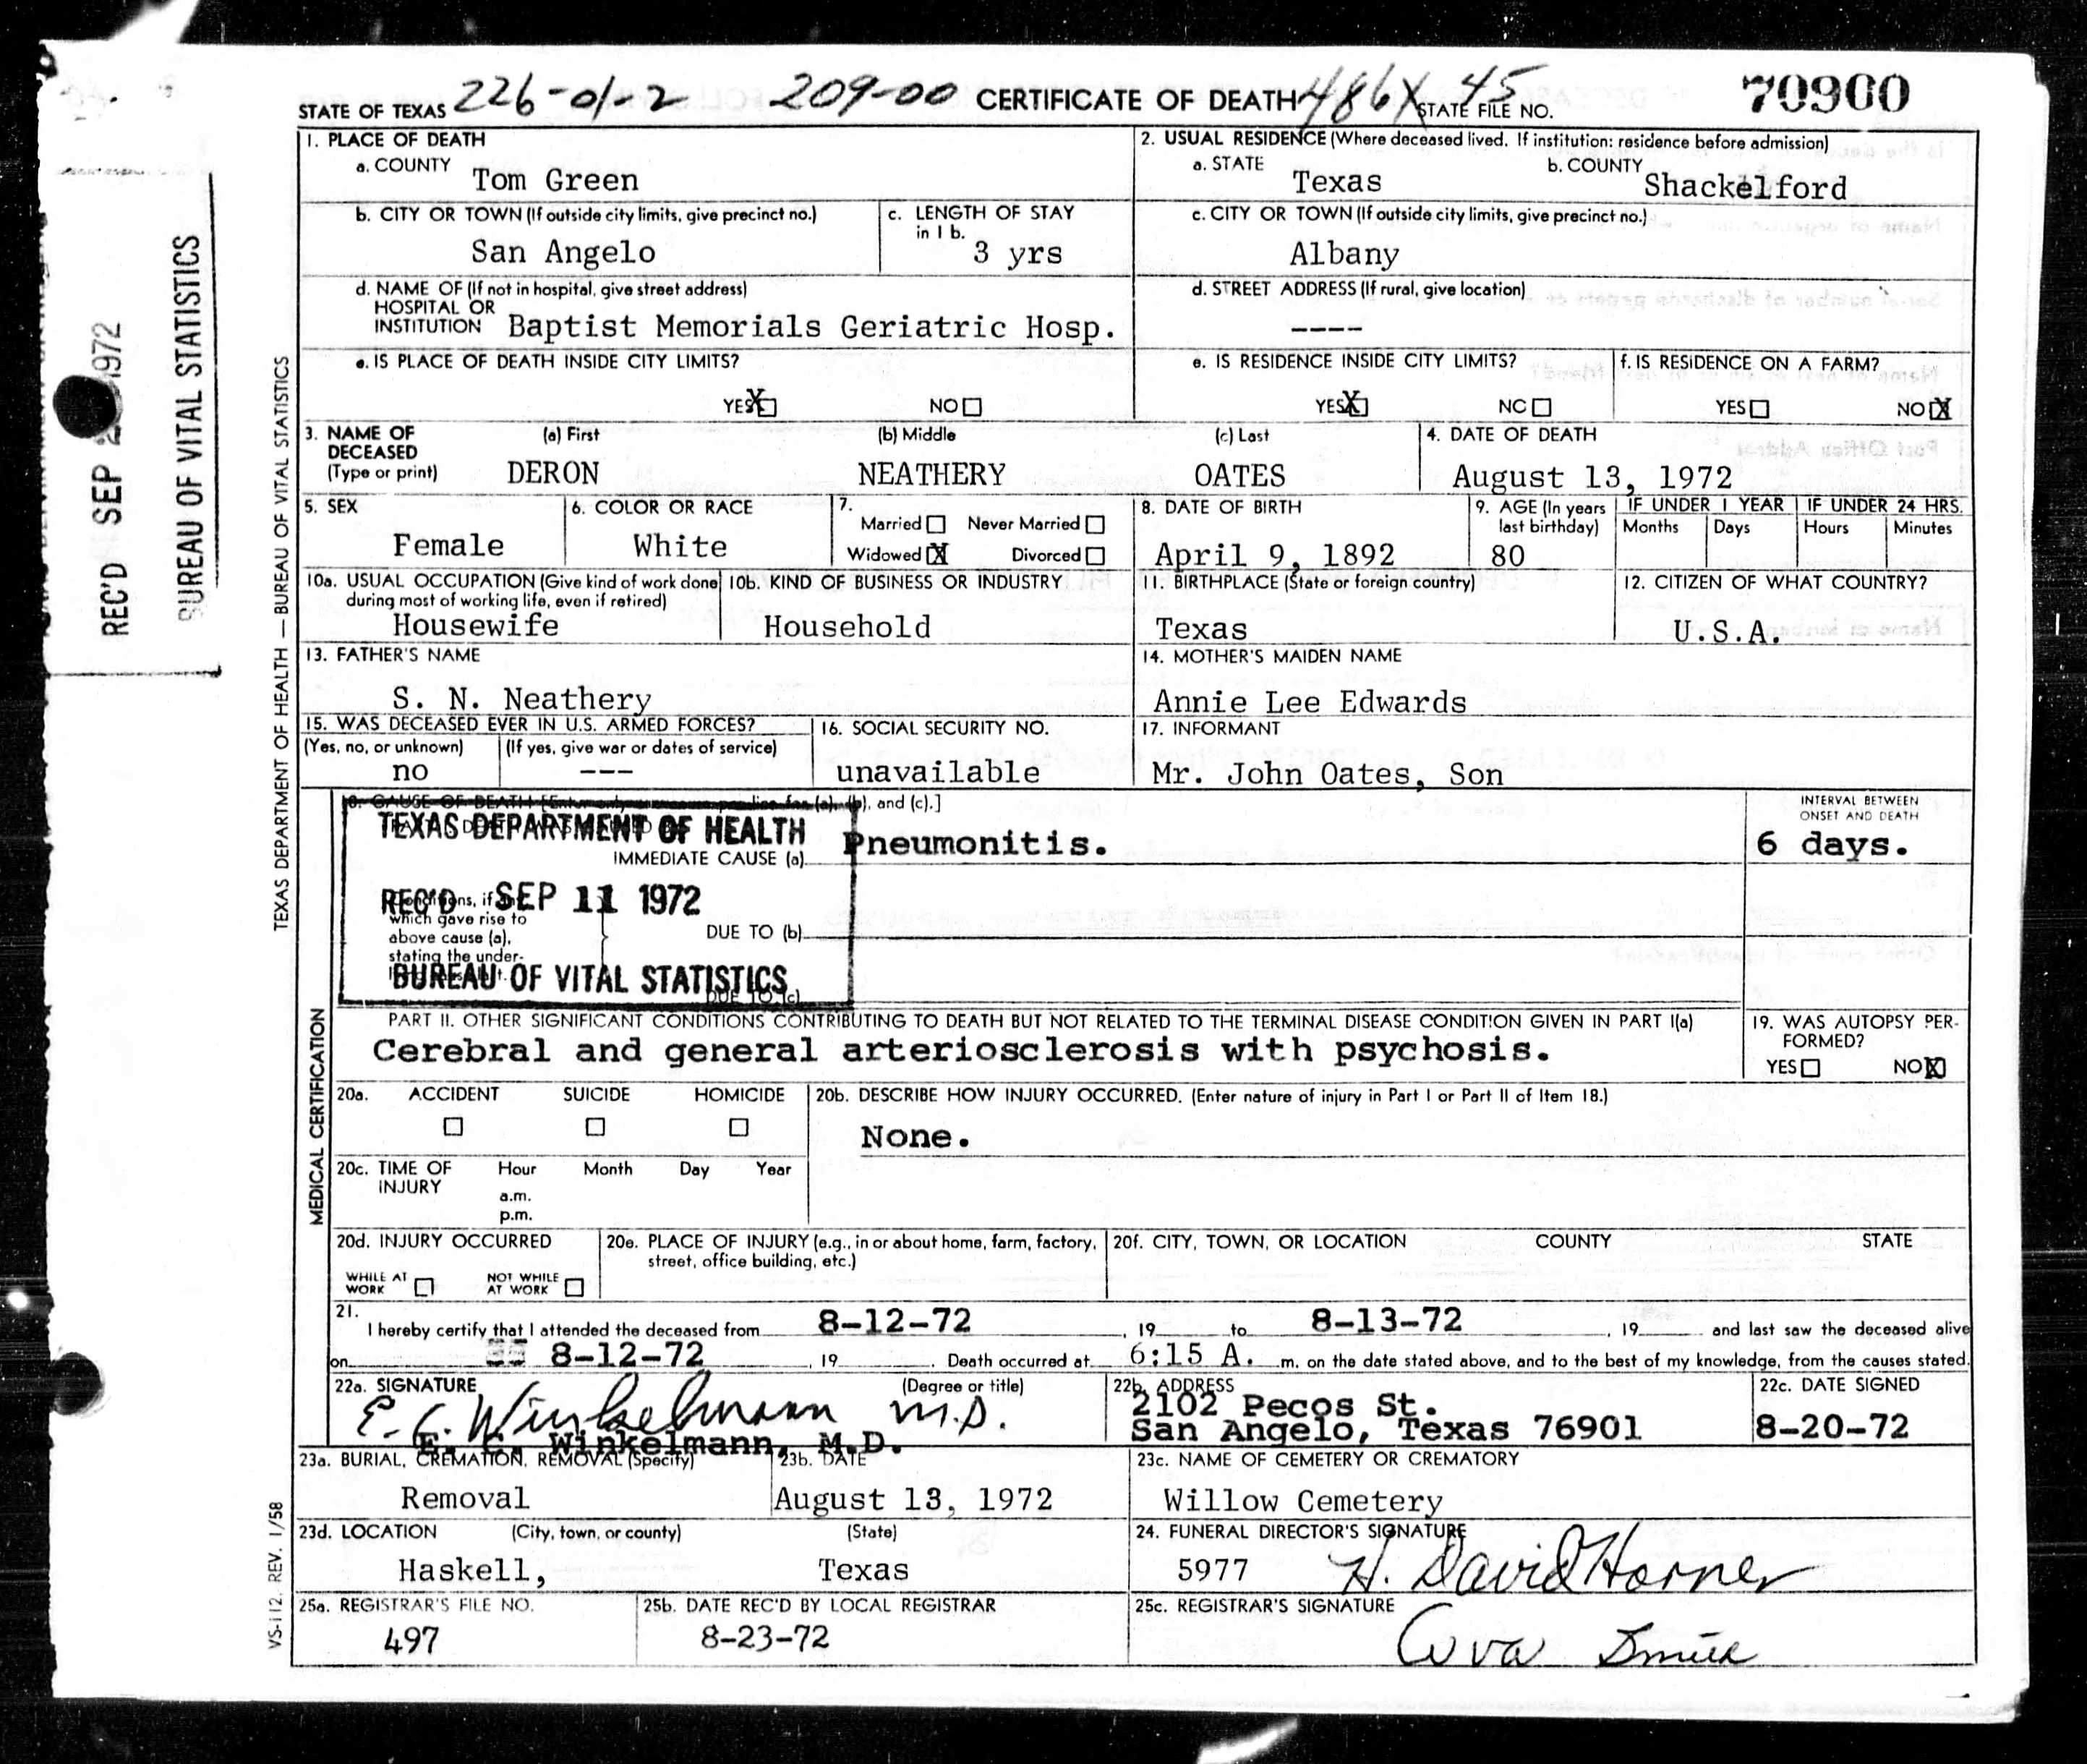 STATE OF TEXAS 226-01-2 209-00 CERTIFICATE OF DEATH 486X 45 STATE FILE NO. 70900
1. PLACE OF DEATH
a. COUNTY Tom Green
2. USUAL RESIDENCE (Where deceased lived. If institution: residence before admission)
a. STATE Texas b. COUNTY Shackelford
b. CITY OR TOWN (If outside city limits, give precinct no.)
San Angelo
c. LENGTH OF STAY in 1 b.
3 yrs
c. CITY OR TOWN (If outside city limits, give precinct no.)
Albany
d. NAME OF (If not in hospital, give street address)
HOSPITAL OR
INSTITUTION Baptist Memorials Geriatric Hosp.
d. STREET ADDRESS (If rural, give location)
----
e. IS PLACE OF DEATH INSIDE CITY LIMITS?
YES X NO
e. IS RESIDENCE INSIDE CITY LIMITS?
YES X NO
f. IS RESIDENCE ON A FARM?
YES NO X
3. NAME OF DECEASED (Type or print)
(a) First (b) Middle (c) Last
DERON NEATHERY OATES
4. DATE OF DEATH
August 13, 1972
5. SEX
Female
6. COLOR OR RACE
White
7.
Married Never Married
Widowed X Divorced
8. DATE OF BIRTH
April 9, 1892
9. AGE (In years last birthday)
80
IF UNDER 1 YEAR IF UNDER 24 HRS.
Months Days Hours Minutes
10a. USUAL OCCUPATION (Give kind of work done during most of working life, even if retired)
Housewife
10b. KIND OF BUSINESS OR INDUSTRY
Household
11. BIRTHPLACE (State or foreign country)
Texas
12. CITIZEN OF WHAT COUNTRY?
U.S.A.
13. FATHER'S NAME
S. N. Neathery
14. MOTHER'S MAIDEN NAME
Annie Lee Edwards
15. WAS DECEASED EVER IN U.S. ARMED FORCES?
(Yes, no, or unknown) (If yes, give war or dates of service)
no ---
16. SOCIAL SECURITY NO.
unavailable
17. INFORMANT
Mr. John Oates, Son
18. CAUSE OF DEATH [Enter only one cause per line for (a), (b), and (c).]
TEXAS DEPARTMENT OF HEALTH
REC'D SEP 11 1972
BUREAU OF VITAL STATISTICS
IMMEDIATE CAUSE (a) Pneumonitis.
INTERVAL BETWEEN ONSET AND DEATH
6 days.
which gave rise to
above cause (a),
stating the under-
DUE TO (b)
DUE TO (c)
PART II. OTHER SIGNIFICANT CONDITIONS CONTRIBUTING TO DEATH BUT NOT RELATED TO THE TERMINAL DISEASE CONDITION GIVEN IN PART I(a)
Cerebral and general arteriosclerosis with psychosis.
19. WAS AUTOPSY PERFORMED?
YES NO X
20a. ACCIDENT SUICIDE HOMICIDE
20b. DESCRIBE HOW INJURY OCCURRED. (Enter nature of injury in Part I or Part II of Item 18.)
None.
20c. TIME OF INJURY Hour Month Day Year
a.m.
p.m.
20d. INJURY OCCURRED
WHILE AT WORK NOT WHILE AT WORK
20e. PLACE OF INJURY (e.g., in or about home, farm, factory, street, office building, etc.)
20f. CITY, TOWN, OR LOCATION COUNTY STATE
21.
I hereby certify that I attended the deceased from 8-12-72, 19 to 8-13-72, 19 and last saw the deceased alive
on 8-12-72, 19 . Death occurred at 6:15 A. m. on the date stated above, and to the best of my knowledge, from the causes stated.
22a. SIGNATURE (Degree or title)
E. C. Winkelmann M.D.
E. C. Winkelmann, M.D.
22b. ADDRESS
2102 Pecos St.
San Angelo, Texas 76901
22c. DATE SIGNED
8-20-72
23a. BURIAL, CREMATION, REMOVAL (Specify)
Removal
23b. DATE
August 13, 1972
23c. NAME OF CEMETERY OR CREMATORY
Willow Cemetery
23d. LOCATION (City, town, or county) (State)
Haskell, Texas
24. FUNERAL DIRECTOR'S SIGNATURE
5977 H. David Horner
25a. REGISTRAR'S FILE NO.
497
25b. DATE REC'D BY LOCAL REGISTRAR
8-23-72
25c. REGISTRAR'S SIGNATURE
Smith
TEXAS DEPARTMENT OF HEALTH — BUREAU OF VITAL STATISTICS
MEDICAL CERTIFICATION
VS-112. REV. 1/58
REC'D SEP 1972
BUREAU OF VITAL STATISTICS